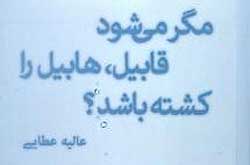 مگر می‌شود
قابیل، هابیل را
کشته باشد؟
عالیه عطایی